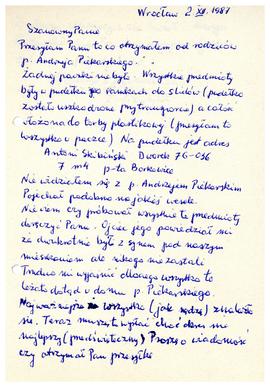 Wrocław 2 XII. 1987
Szanowny Panie
Przesyłam Panu to co otrzymałem od rodziców
p. Andrzeja Piekarskiego.
Żadnej paczki nie było. Wszystkie przedmioty
były w pudełku po ramkach do slidów (pudełko
zostało uszkodzone przy transporcie) a całość
włożona do torby plastikowej (przesyłam to
wszystko w paczce) Na pudełku jest adres
Antoni Skibiński Dworek 76-036
7 m 4 p-ta Borkowice
Nie widziałem się z p. Andrzejem Piekarskim
Pojechał podobno na jakieś wesele.
Nie wiem czy próbował wszystkie te przedmioty
doręczyć Panu. Ojciec jego powiedział mi
że dwukrotnie był z synem pod naszym
mieszkaniem ale nikogo nie zastali
Trudno mi wyjaśnić dlaczego wszystko to
leżało dotąd w domu p. Piekarskiego.
Najważniejsze że wszystko (jak sądzę) znalazło
się. Teraz muszę wysłać choć okres nie
najlepszy (przedświąteczny) Proszę o wiadomość
czy otrzymał Pan przesyłkę